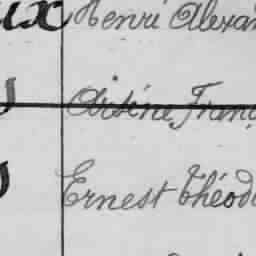 ux Henri Alexan
Arsène Franç
Ernest Théodo